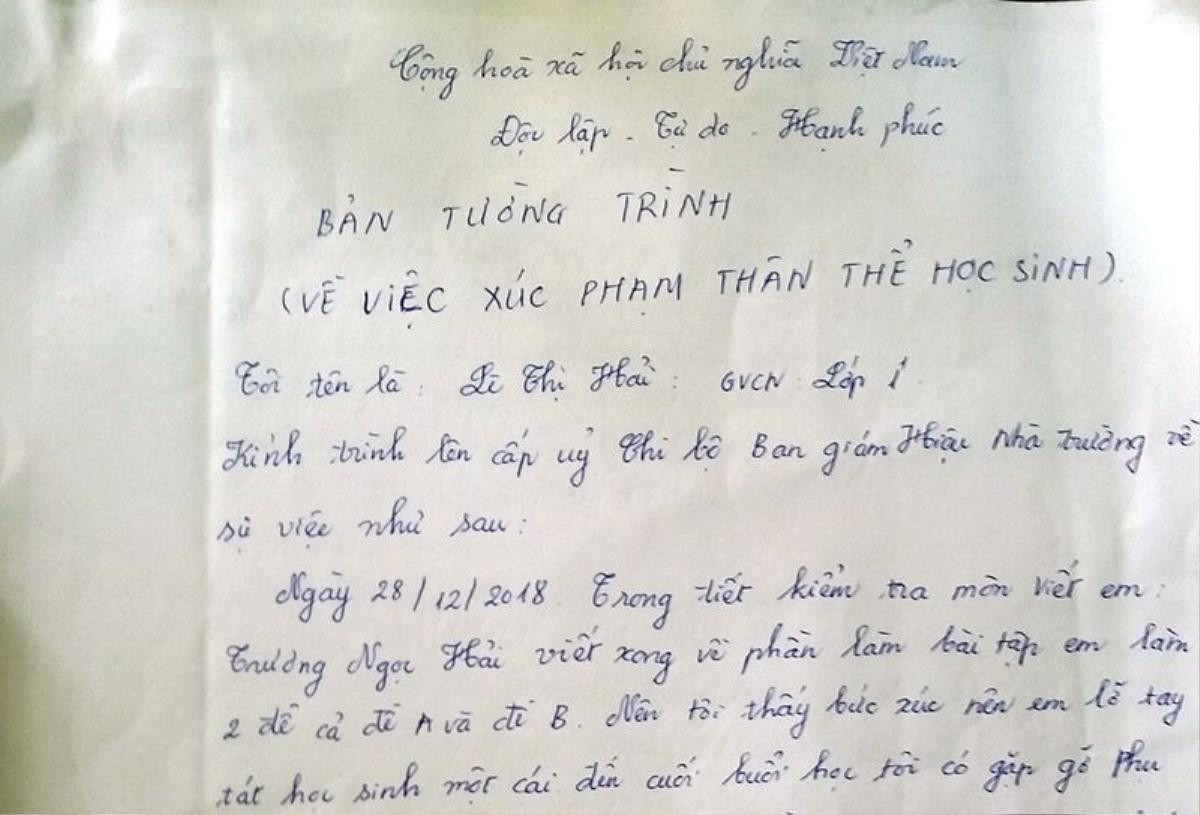 Cộng hoà xã hội chủ nghĩa Việt Nam
Độc lập - Tự do - Hạnh phúc
BẢN TƯỜNG TRÌNH
(VỀ VIỆC XÚC PHẠM THÂN THỂ HỌC SINH).
Tôi tên là: Lê Thị Hải: GVCN: Lớp 1
Kính trình lên cấp uỷ Chi bộ Ban giám Hiệu nhà trường về
sự việc như sau:
Ngày 28/12/2018. Trong tiết kiểm tra môn viết em:
Trương Ngọc Hải viết xong về phần làm bài tập em làm
2 đề cả đề A và đề B. Nên tôi thấy bức xúc nên em lỡ tay
tát học sinh một cái đến cuối buổi học tôi có gặp gỡ Phụ